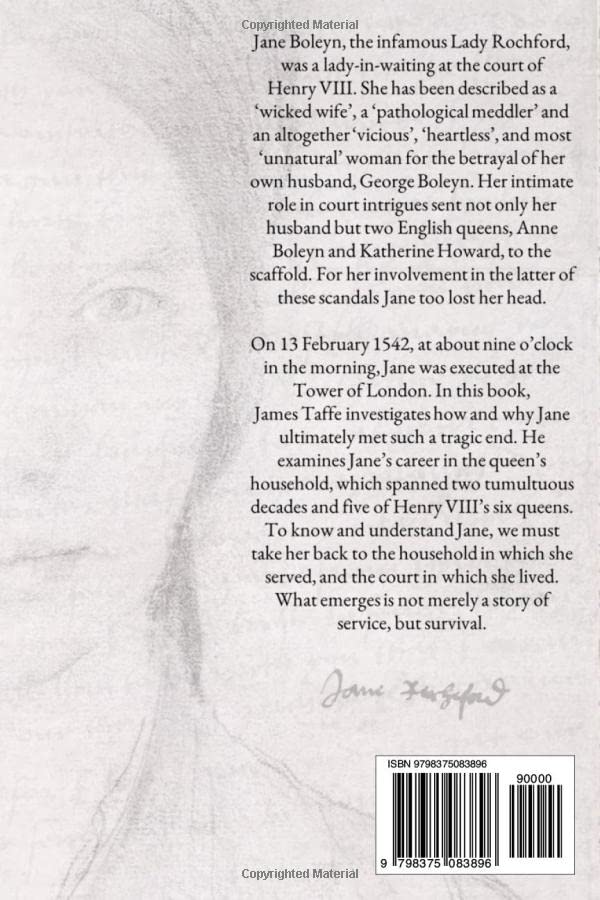 Copyrighted Material
Jane Boleyn, the infamous Lady Rochford,
was a lady-in-waiting at the court of
Henry VIII. She has been described as a
‘wicked wife’, a ‘pathological meddler’ and
an altogether ‘vicious’, ‘heartless’, and most
‘unnatural’ woman for the betrayal of her
own husband, George Boleyn. Her intimate
role in court intrigues sent not only her
husband but two English queens, Anne
Boleyn and Katherine Howard, to the
scaffold. For her involvement in the latter of
these scandals Jane too lost her head.
On 13 February 1542, at about nine o’clock
in the morning, Jane was executed at the
Tower of London. In this book,
James Taffe investigates how and why Jane
ultimately met such a tragic end. He
examines Jane’s career in the queen’s
household, which spanned two tumultuous
decades and five of Henry VIII’s six queens.
To know and understand Jane, we must
take her back to the household in which she
served, and the court in which she lived.
What emerges is not merely a story of
service, but survival.
Jane
ISBN 9798375083896
90000
9 798375 083896
Copyrighted Material